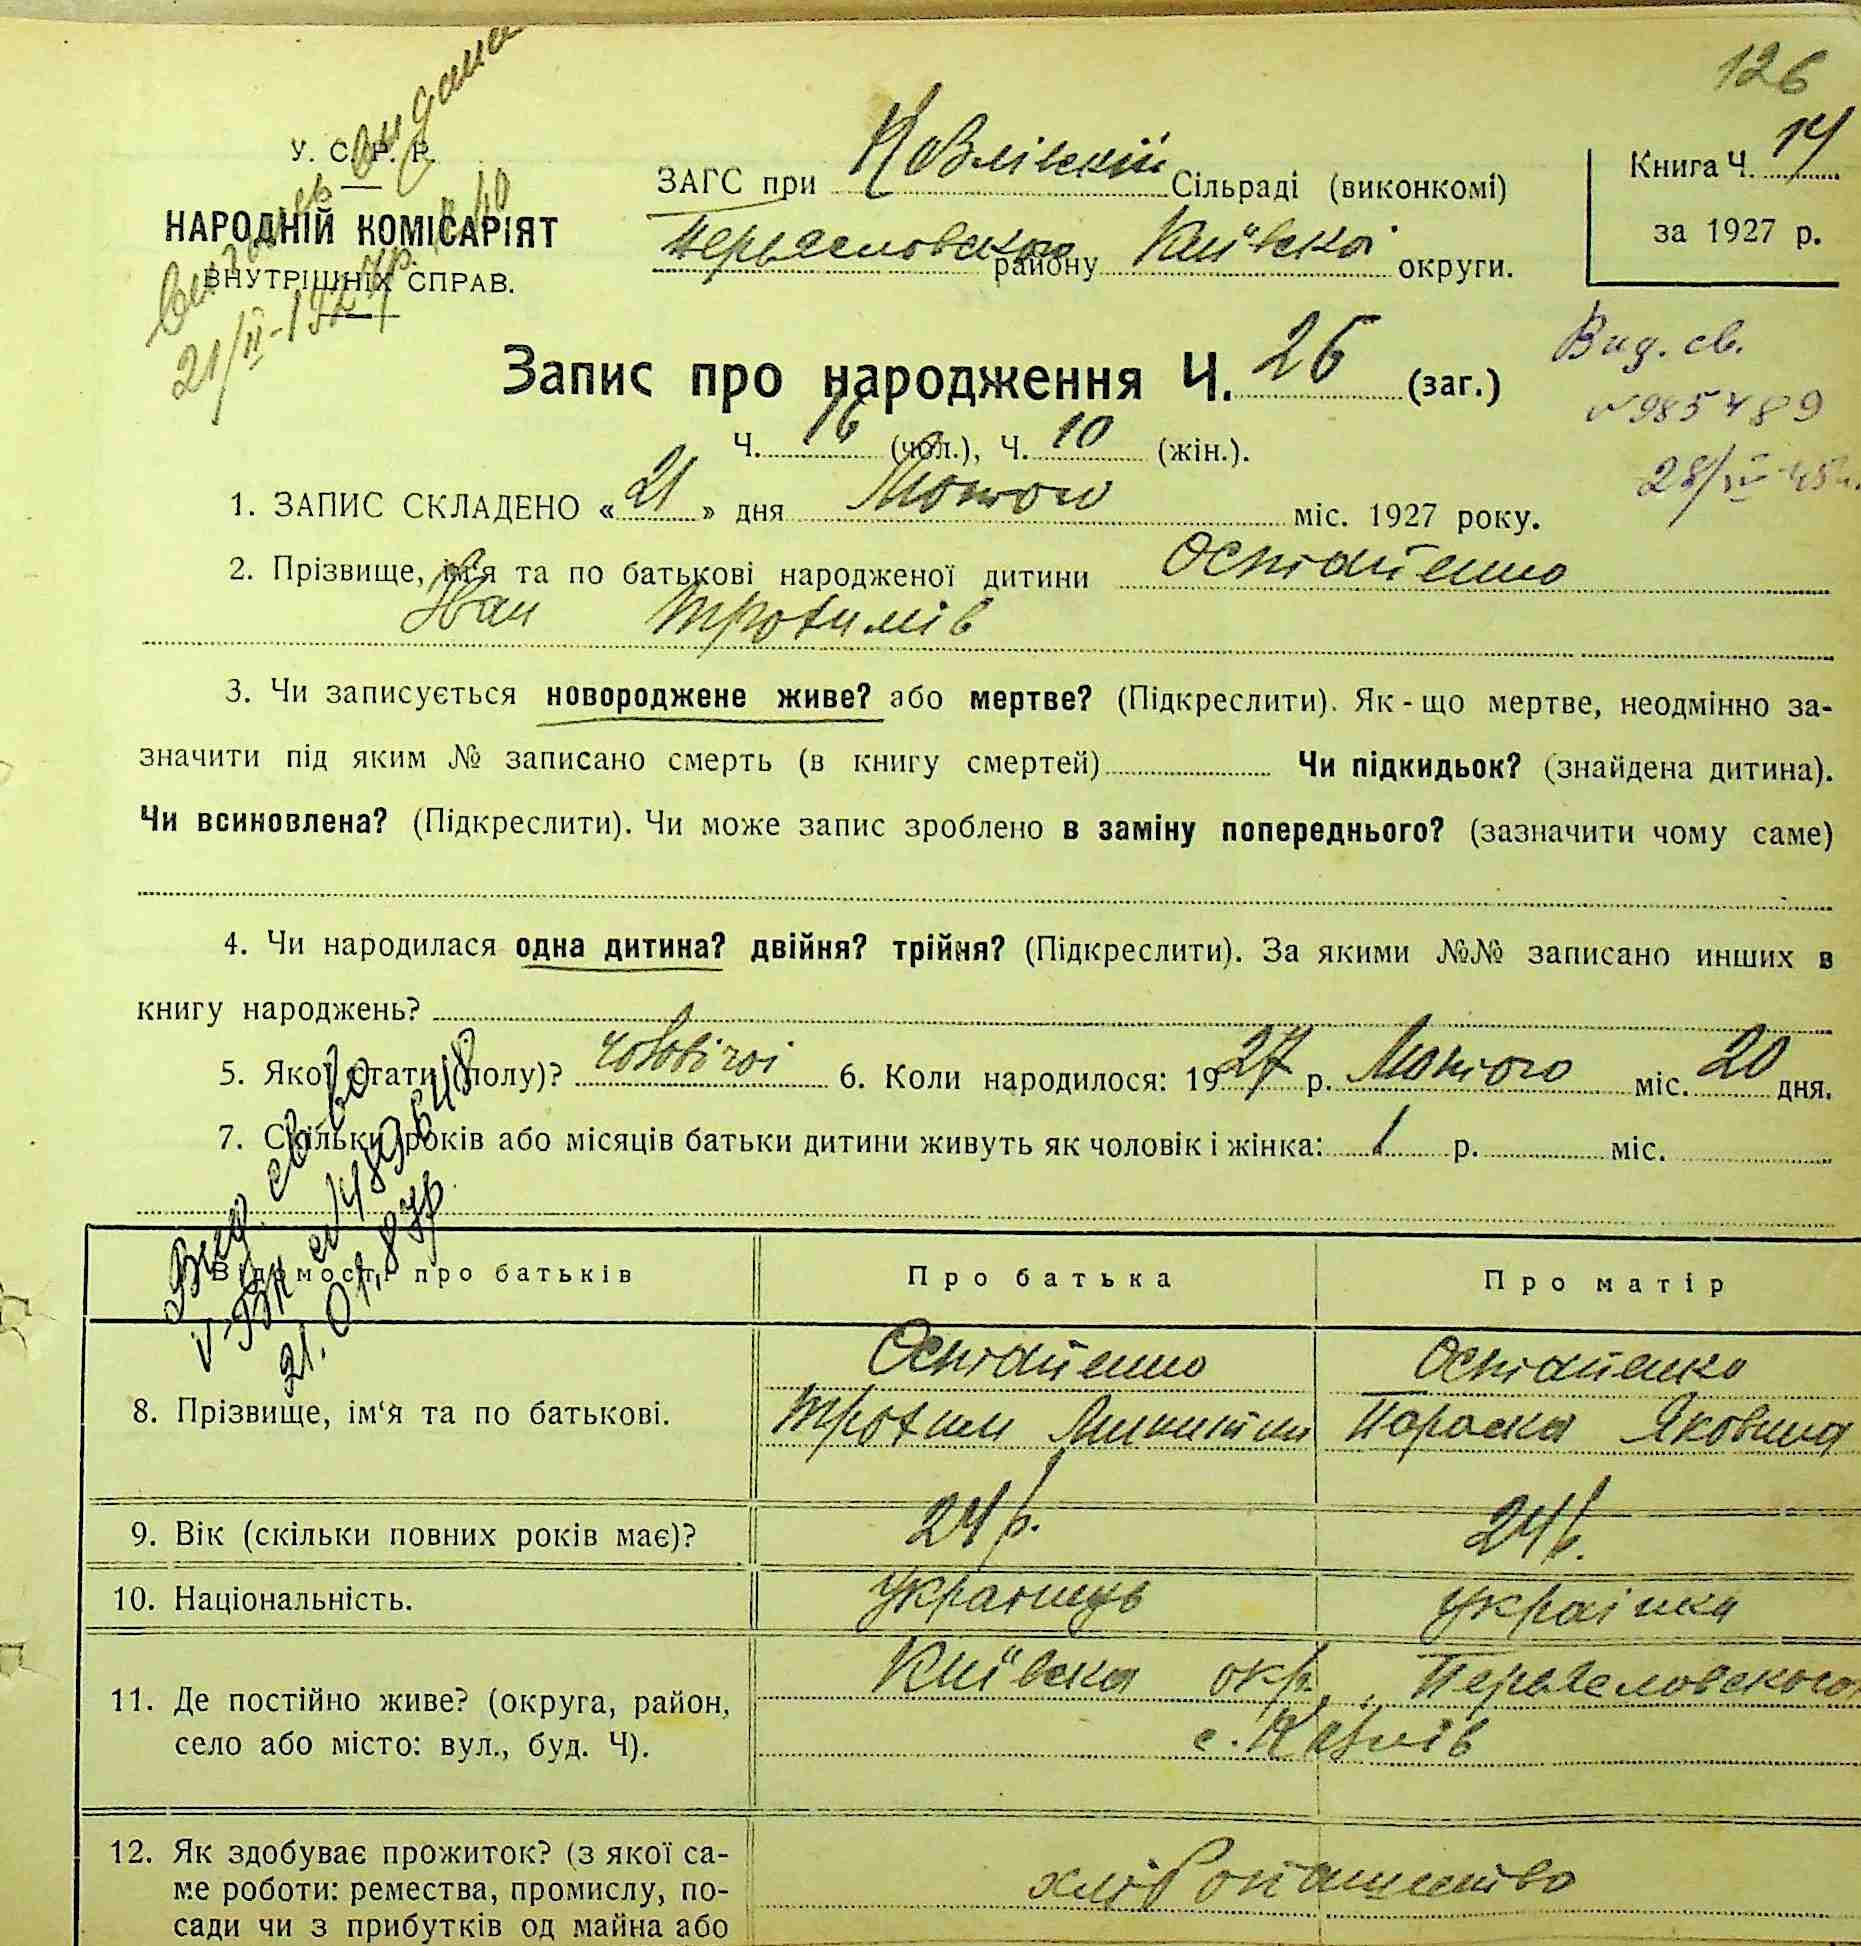 126
У. С. Р. Р.
НАРОДНІЙ КОМІСАРІЯТ
ВНУТРІШНІХ СПРАВ.
видана
21/II-1927 р.
ЗАГС при Козлівскій Сільраді (виконкомі)
Переяславского району Київскої округи.
Книга Ч. 14
за 1927 р.
Запис про народження Ч. 26 (заг.)
Ч. 16 (чол.), Ч. 10 (жін.).
Вид. св.
№ 985489
1. ЗАПИС СКЛАДЕНО « 21 » дня Лютого міс. 1927 року.
2. Прізвище, ім'я та по батькові народженої дитини Остапенко
Іван Трохимів
3. Чи записується новороджене живе? або мертве? (Підкреслити). Як-що мертве, неодмінно за-
значити під яким № записано смерть (в книгу смертей) Чи підкидьок? (знайдена дитина).
Чи всиновлена? (Підкреслити). Чи може запис зроблено в заміну попереднього? (зазначити чому саме)
4. Чи народилася одна дитина? двійня? трійня? (Підкреслити). За якими №№ записано инших в
книгу народжень?
5. Якої стати (полу)? чоловічої 6. Коли народилося: 1927 р. Лютого міс. 20 дня.
7. Скільки років або місяців батьки дитини живуть як чоловік і жінка: 1 р. міс.
Вид. св-во
V-БК №489648
21.01.87р.
Відомості про батьків
Про батька
Про матір
8. Прізвище, ім'я та по батькові.
Остапенко
Трохим Микитин
Остапенко
Параска Яковина
9. Вік (скільки повних років має)?
24 р.
24 р.
10. Національність.
Українець
Українка
11. Де постійно живе? (округа, район,
село або місто: вул., буд. Ч).
Київска окр., Переяславского
с. Козлів
12. Як здобуває прожиток? (з якої са-
ме роботи: ремества, промислу, по-
сади чи з прибутків од майна або
хлібопашество